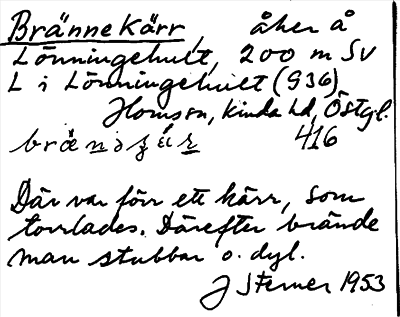 Brännekärr, åker å
Lönningehult, 200 m SV
L i Lönningehult (936)
Hornson, Kinda hd, Östgl.
416
Där var förr ett kärr, som
torrlades. Därefter brände
man stubbar o. dyl.
J Sterner 1953